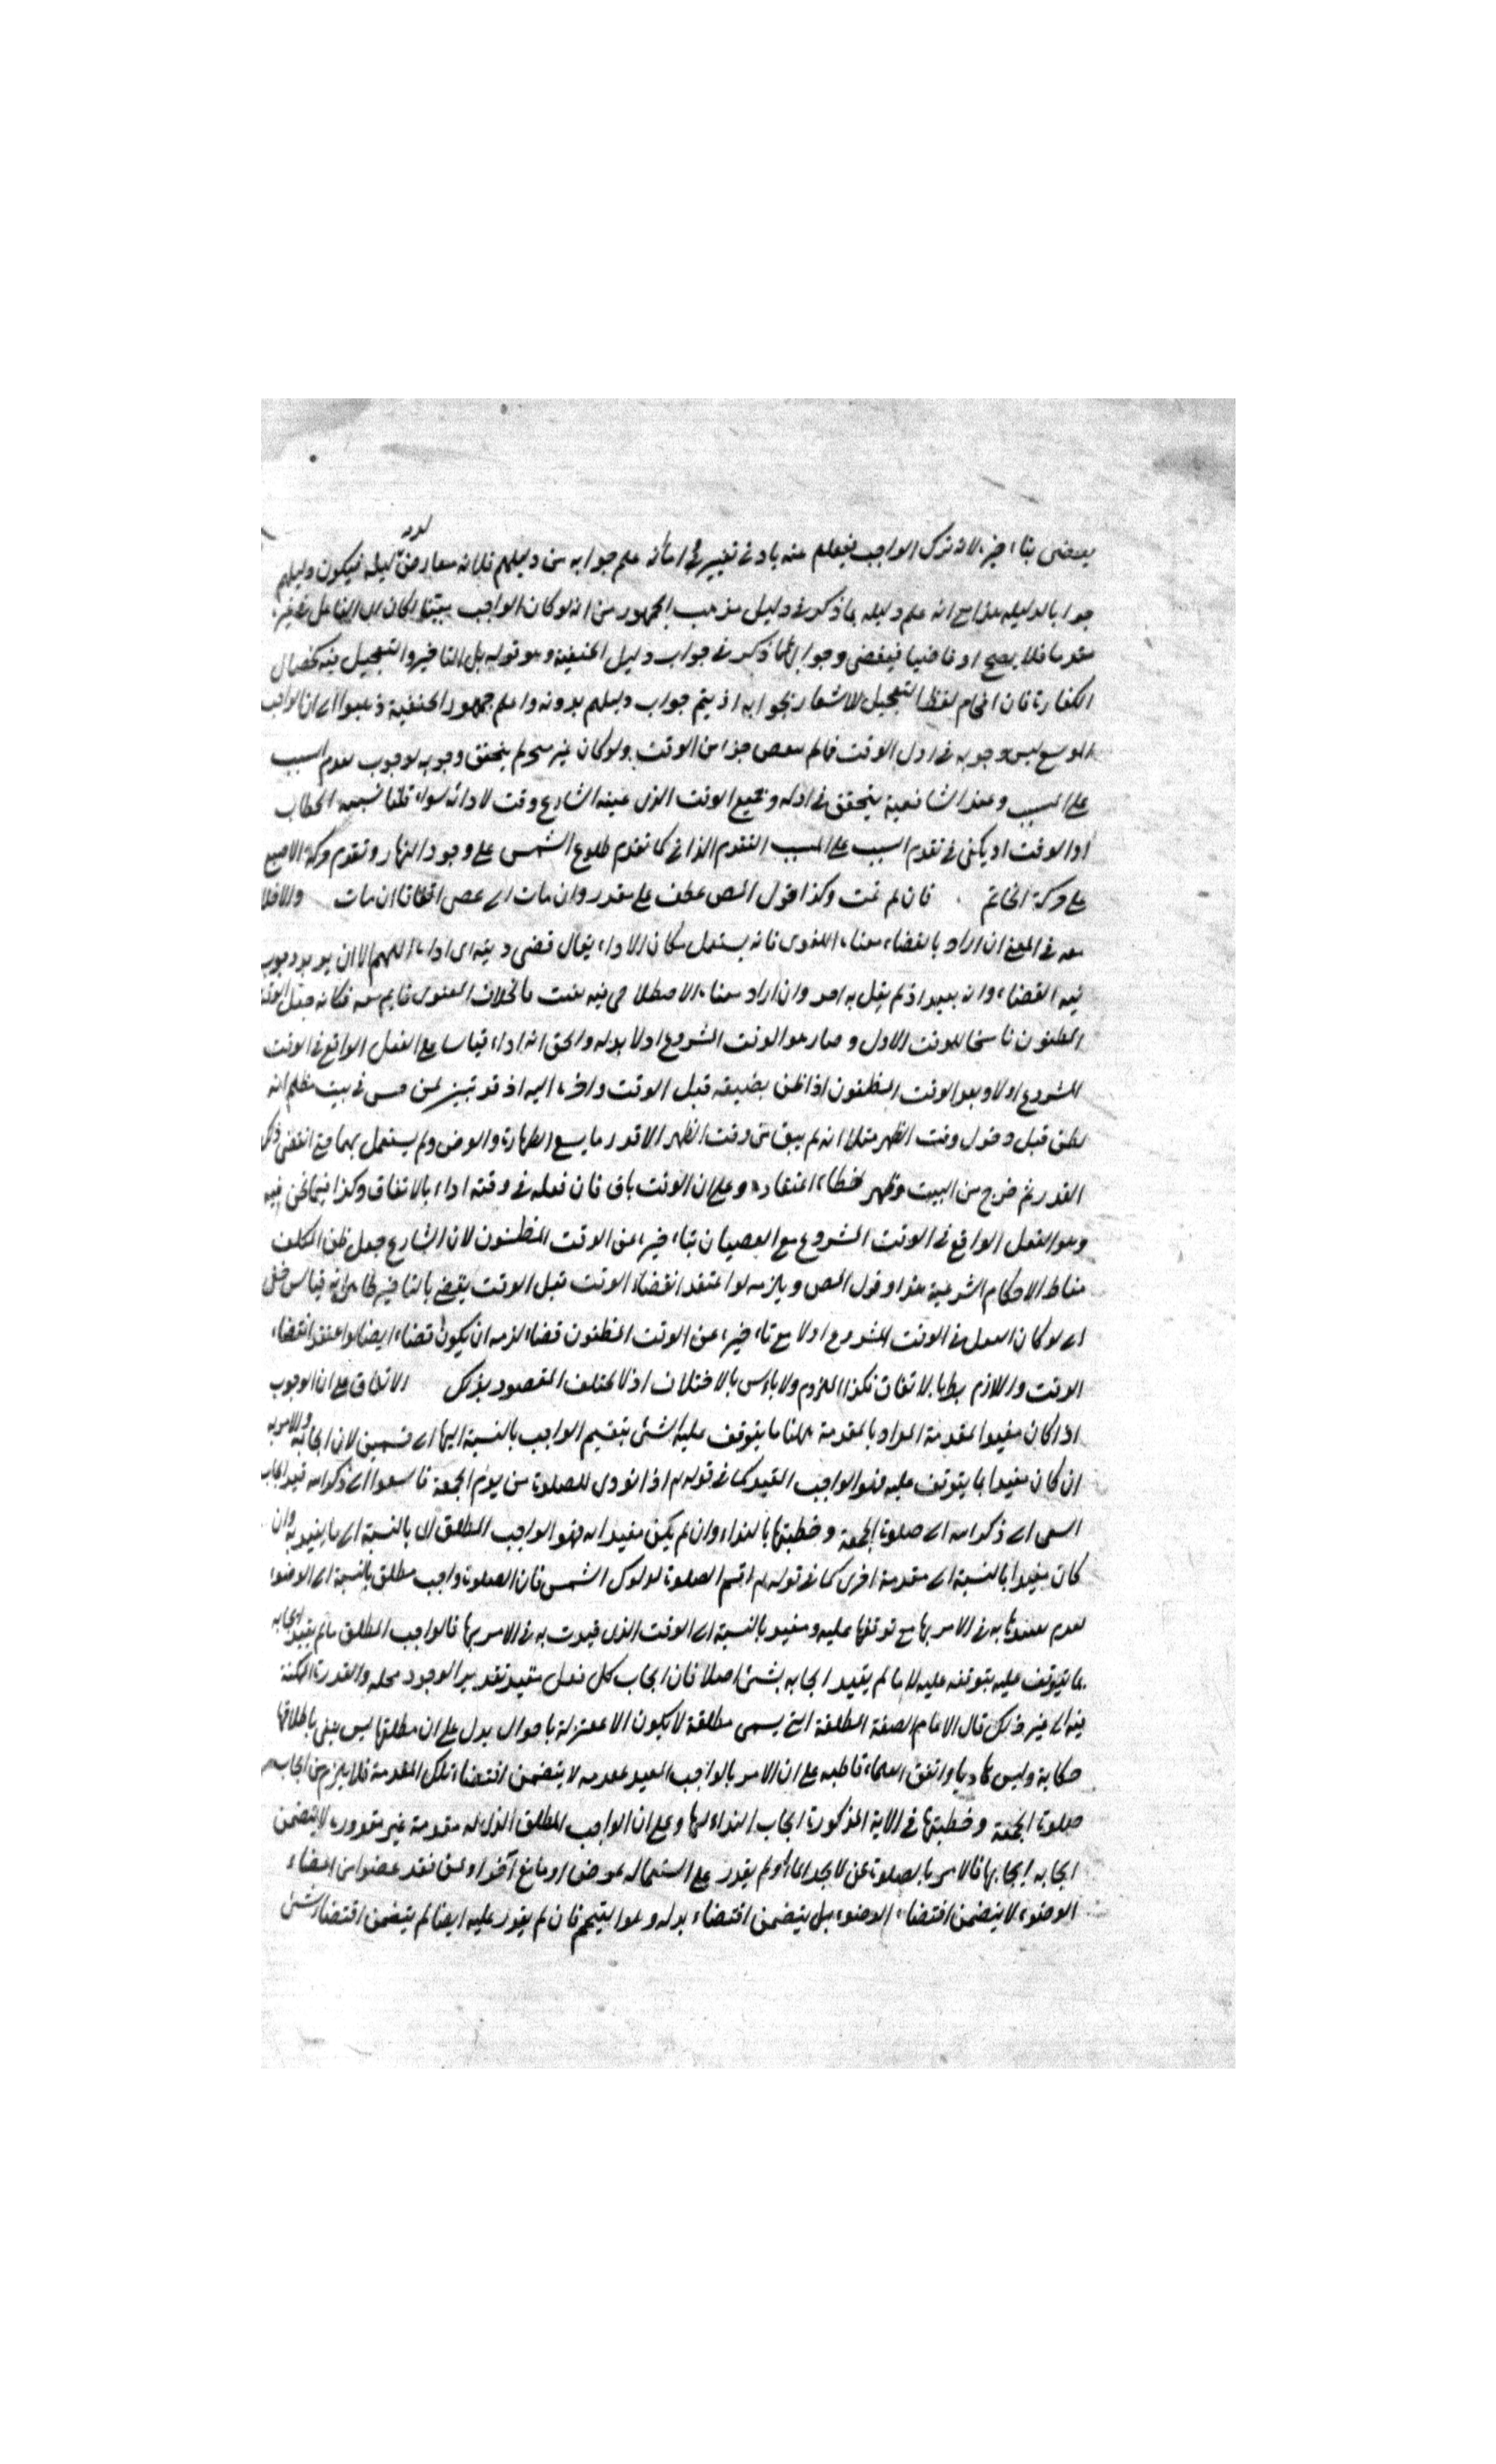 يعصى بتاخيره لانه ترك الواجب فيعلم عنه بادنى تغيير اما انه علم جوابه من دليلهم فلانه معارض لدليله فيكون دليلهم
جوابا لدليله هذا مع انه علم دليله بما ذكر في دليل مذهب الجمهور من انه لو كان الواجب معينا لكان الفاعل في غيره
مقدما فلا يصح او قاضيا فيعصى وجوابه مما ذكر في جواب دليل الحنفية وهو قوله بل التاخير والتعجيل فيه كخصال
الكفارة فان اقحام لفظ التعجيل للاشعار بجوابه اذ يتم جواب دليلهم بدونه واعلم جمهور الحنفية ذهبوا الى ان الواجب
الموسع ليس وجوبه في اول الوقت فما لم جزا من الوقت ولو كان غير لم يتحقق وجوبه لوجوب تقدم السبب
على المسبب وعند الشافعية يتحقق في اوله وجميع الوقت الذي عينه الشارع وقت لادائه سواء قلنا سببه الخطاب
او الوقت اذ يكفي في تقدم السبب على المسبب التقدم الذاتي كما تقدم طلوع الشمس على وجود النهار وتقدم حركة الاصبع
على حركة الخاتم فان لم تمت وكذا قول المص عطف على مقدر وان مات اى عصى اتفاقا ان مات والا فلا
معه في المعنى ان اراد بالقضاء معناه اللغوى فانه يستعمل مكان الاداء يقال قضى دينه اى اداه اللهم الا ان يريد وجوب
نية القضاء وانه بعيد اذ لم يقل به احد وان اراد معناه الاصطلاحى فيه بحث فالخلاف المعنوى قايم معه فكانه جعل الوقت
المظنون ناسخا للوقت الاول وصار هو الوقت المشروع اولا بدله والحق انه اداء قياسا على الفعل الواقع في الوقت
المشروع اولا وبعد الوقت المظنون اذا ظن بضيقه قبل الوقت واخره اليه اذ قد تبين لمن حبس في بيت مظلم انه
يظن قبل دخول وقت الظهر مثلا انه لم يبق من وقت الظهر الا قدر ما يسع الطهارة والفرض ولم يستعمل بهما حتى انقضى ذلك
القدر ثم خرج من البيت وظهر خطاء اعتقاده وعلم ان الوقت باق فان فعله في وقته اداء بالاتفاق وكذا فيما نحن فيه
وهو الفعل الواقع في الوقت المشروع مع العصيان بتاخيره عن الوقت المظنون لان الشارع جعل ظن المكلف
مناط الاحكام الشرعية هذا وقول المص ويلزمه لو اعتقد انقضاء الوقت قبل الوقت يعصى بالتاخير ظاهر انه قياس خلفى
اى لو كان الفعل في الوقت المشروع اولا مع تاخيره عن الوقت المظنون قضاء لزمه ان يكون قضاء ايضا لو اعتقد انقضاء
الوقت واللازم بط بالاتفاق فكذا الملزوم ولا باس بالاختلاف اذ لا يختلف المقصود بذلك الاتفاق على ان الوجوب
اذا كان مقيدا لمقدمة المراد بالمقدمة ههنا ما يتوقف عليه الشئ ينقسم الواجب بالنسبة اليها الى قسمين لان ايجابه والامر به
ان كان مقيدا بما يتوقف عليه فهو الواجب المقيد كما في قوله تع اذا نودى للصلوة من يوم الجمعة فاسعوا الى ذكر الله قيد ايجاب
السعى الى ذكر الله اى صلوة الجمعة وخطبتها بالنداء وان لم يكن مقيدا به فهو الواجب المطلق اى بالنسبة الى ما لم يقيد به وان
كان مقيدا بالنسبة الى مقدمة اخرى كما في قوله تع اقم الصلوة لدلوك الشمس فان الصلوة واجب مطلق بالنسبة الى الوضوء
لعدم تقييدها به في الامر بها مع توقفها عليه ومقيد بالنسبة الى الوقت الذى قيدت به في الامر بها فالواجب المطلق ما لم يقيد ايجابه
بما يتوقف عليه بتوقفه عليه لا ما لم يقيد ايجابه بشئ اصلا فان ايجاب كل فعل مقيد تقديرا لوجود محله والقدرة الممكنة
فيه الى غير ذلك قال الامام الصفة المطلقة التى يسمى مطلقة لا يكون الا باحوال يدل على ان مطلقها ليس يبغى باطلاقها
حكاية وليس واتفق العلماء قاطبة على ان الامر بالواجب المقيد بمقدمة لا يتضمن اقتضاء تلك المقدمة فلا يلزم من ايجاب
صلوة الجمعة وخطبتها في الاية المذكورة ايجاب النداء لها وعلى ان الواجب المطلق الذى له مقدمة غير مقدورة لا يتضمن
ايجابه ايجابها فالامر بالصلوة عن لا يجد الماء او لم يقدر على استعماله لمرض او مانع اخر او عن فقد عضوا من اعضاء
الوضوء لا يتضمن اقتضاء الوضوء بل يتضمن اقتضاء بدله وهو التيمم فان لم يقدر عليه ايضا لم يتضمن اقتضاء شئ